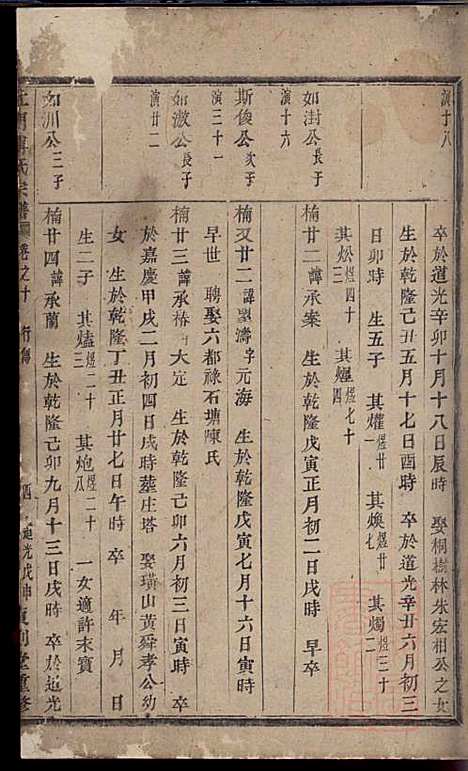 演十八
卒於道光辛卯十月十八日辰時 娶桐樹林朱宏相公之女
生於乾隆己丑五月十七日酉時 卒於道光辛丑六月初三
日卯時 生五子 其爟煜廿一 其煥煜廿七 其燭煜三十二
其炂煜四十三 其燿煜七十四
如澍公長子
演十六
楠廿二諱承案 生於乾隆戊寅正月初二日戌時 早卒
斯俊公次子
演三十一
楠又廿二諱 濤字元海 生於乾隆戊寅七月十六日寅時
早世 聘娶六都祿石塘陳氏
如澂公長子
演廿二
楠廿三諱承椿 大定 生於乾隆己卯六月初三日寅時
於嘉慶甲戌二月初四日戌時塟庄塔 娶璜山黃舜孝公幼
女 生於乾隆丁丑正月廿七日午時 卒 年 月 日
生二子 其燼煜二十三 其炮煜二十八 一女適許末寶
如川公三子
楠廿四諱承蘭 生於乾隆己卯九月十三日戌時 卒於道光
氏宗譜 卷之十 行傳 道光戊申 重修